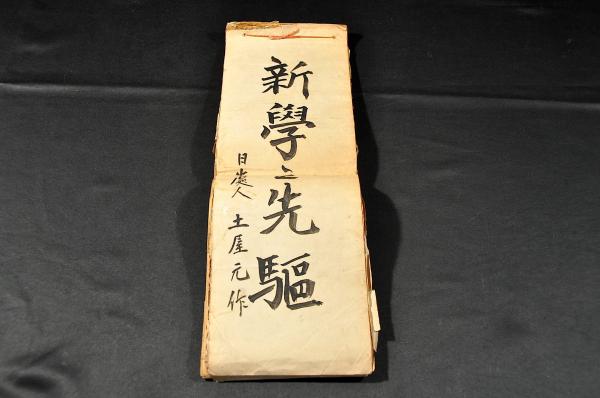 新學之先驅
日處人 土屋元作